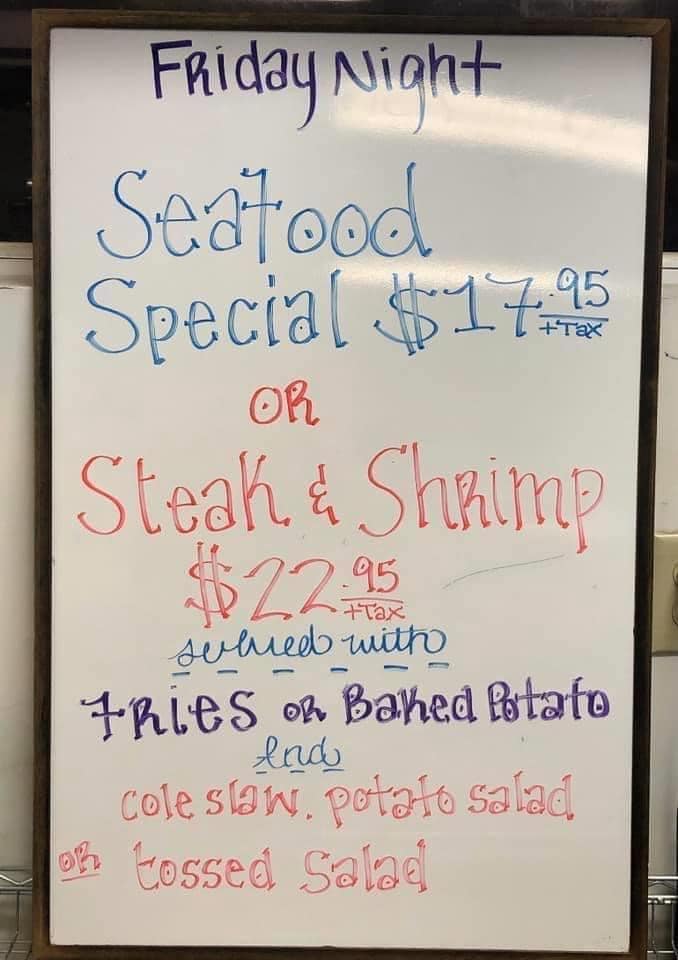 Friday Night
Seafood
Special $17.95
+Tax
OR
Steak & Shrimp
$22.95
+Tax
served with
Fries or Baked Potato
And
cole slaw, potato salad
OR tossed Salad